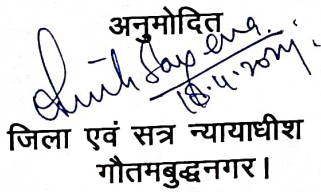 अनुमोदित
18.4.2024.
जिला एवं सत्र न्यायाधीश
गौतमबुद्धनगर।